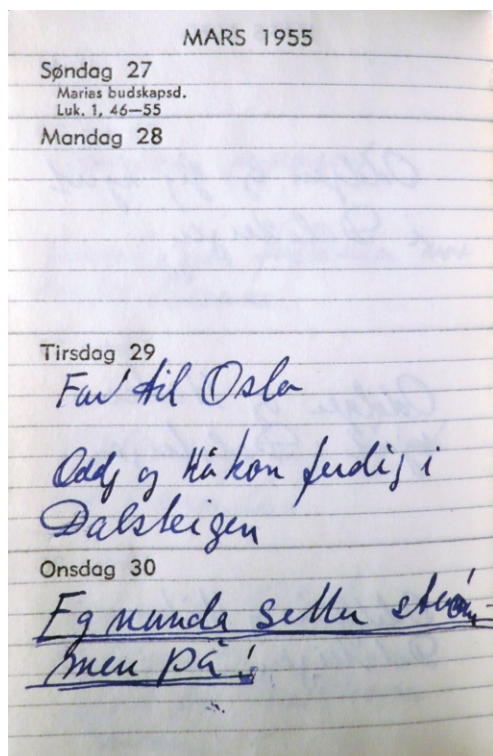 MARS 1955
Søndag 27
Marias budskapsd.
Luk. 1, 46—55
Mandag 28
Tirsdag 29
Far til Oslo
og Håkon ferdig i
Dalsteigen
Onsdag 30
Eg setter strøm-
men på!